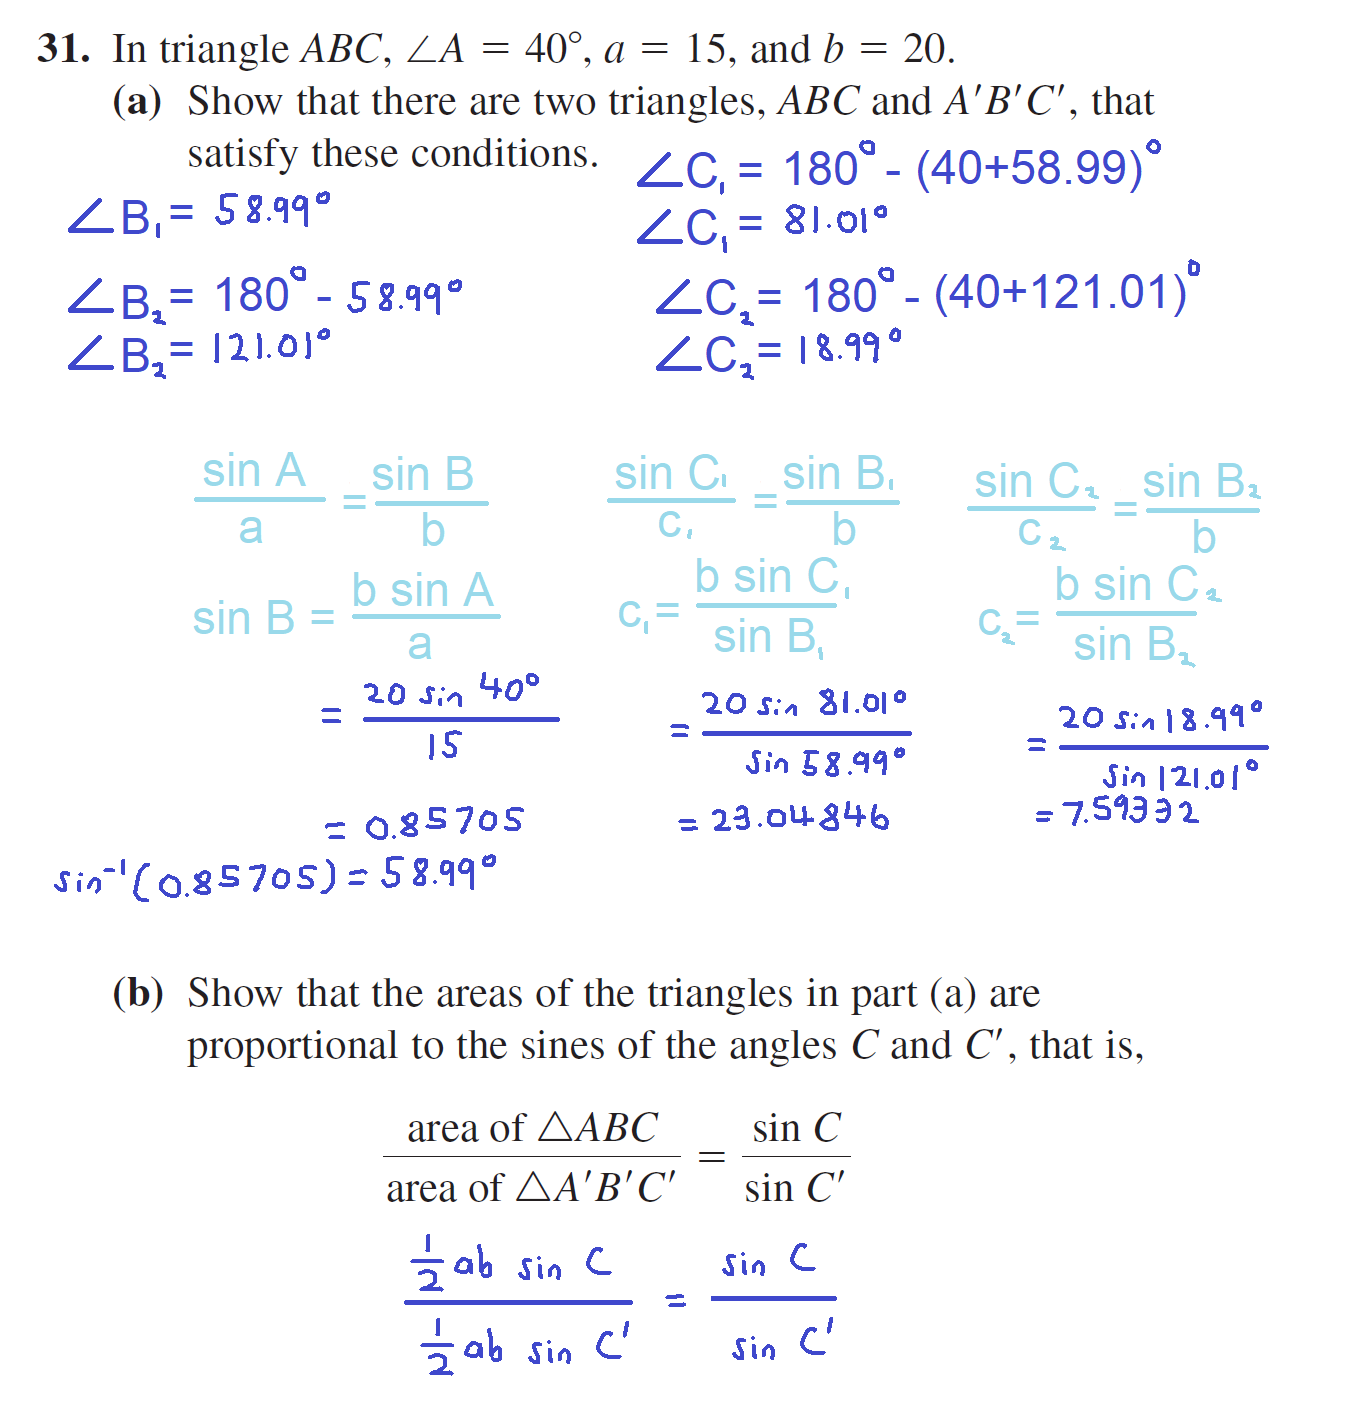 31. In triangle ABC, ∠A = 40°, a = 15, and b = 20.
(a) Show that there are two triangles, ABC and A′B′C′, that
satisfy these conditions.
∠B₁ = 58.99°
∠B₂ = 180° - 58.99°
∠B₂ = 121.01°
∠C₁ = 180° - (40+58.99)°
∠C₁ = 81.01°
∠C₂ = 180° - (40+121.01)°
∠C₂ = 18.99°
sin A / a = sin B / b
sin B = b sin A / a
= 20 sin 40° / 15
= 0.85705
sin⁻¹(0.85705) = 58.99°
sin C₁ / c₁ = sin B₁ / b
c₁ = b sin C₁ / sin B₁
= 20 sin 81.01° / sin 58.99°
= 23.04846
sin C₂ / c₂ = sin B₂ / b
c₂ = b sin C₂ / sin B₂
= 20 sin 18.99° / sin 121.01°
= 7.59332
(b) Show that the areas of the triangles in part (a) are
proportional to the sines of the angles C and C′, that is,
area of △ABC / area of △A′B′C′ = sin C / sin C′
½ ab sin C / ½ ab sin C' = sin C / sin C'